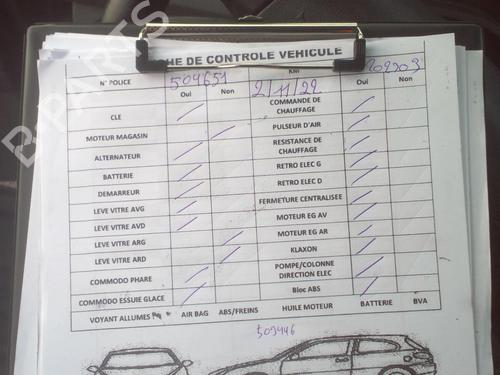 HE DE CONTROLE VEHICULE
N° POLICE 509651 KM 202203
Oui Non 2/11/22 Oui Non
CLE COMMANDE DE CHAUFFAGE
MOTEUR MAGASIN PULSEUR D'AIR
ALTERNATEUR RESISTANCE DE CHAUFFAGE
BATTERIE RETRO ELEC G
DEMARREUR RETRO ELEC D
LEVE VITRE AVG FERMETURE CENTRALISEE
LEVE VITRE AVD MOTEUR EG AV
LEVE VITRE ARG MOTEUR EG AR
LEVE VITRE ARD KLAXON
COMMODO PHARE POMPE/COLONNE DIRECTION ELEC
COMMODO ESSUIE GLACE Bloc ABS
VOYANT ALLUMES AIR BAG ABS/FREINS HUILE MOTEUR BATTERIE BVA
509446